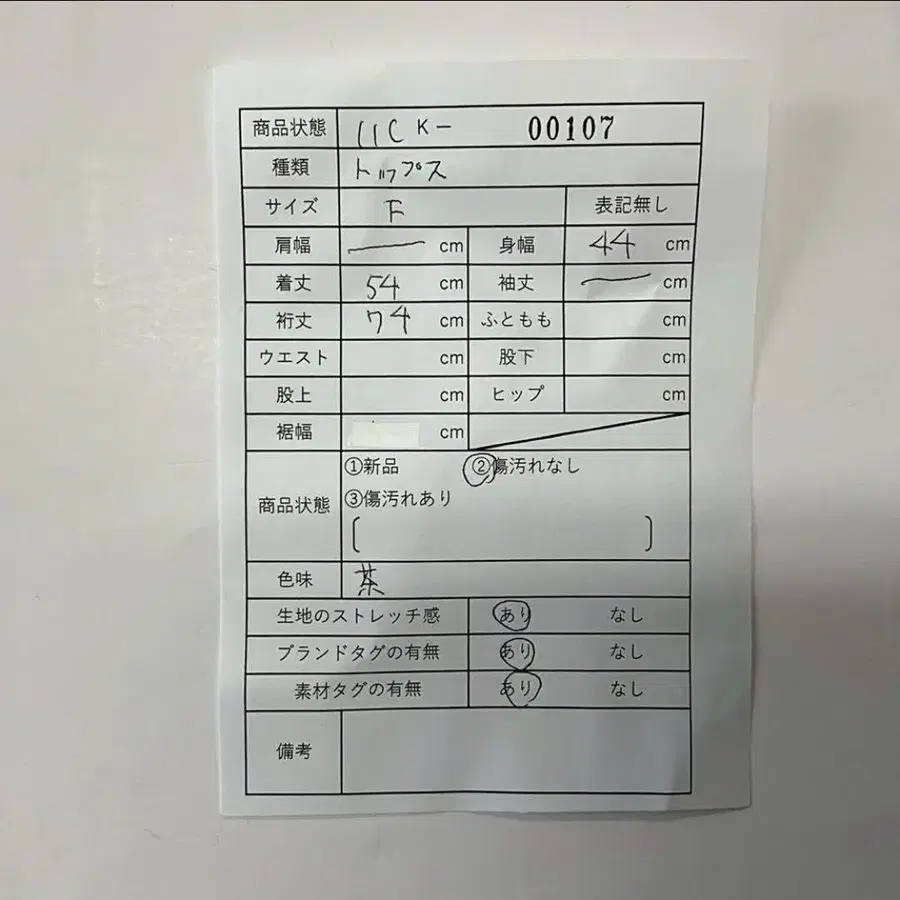 商品状態 11C K- 00107
種類 トップス
サイズ F 表記無し
肩幅 — cm 身幅 44 cm
着丈 54 cm 袖丈 — cm
裄丈 74 cm ふともも cm
ウエスト cm 股下 cm
股上 cm ヒップ cm
裾幅 cm
商品状態 ①新品 ②傷汚れなし
③傷汚れあり
[ ]
色味 茶
生地のストレッチ感 あり なし
ブランドタグの有無 あり なし
素材タグの有無 あり なし
備考